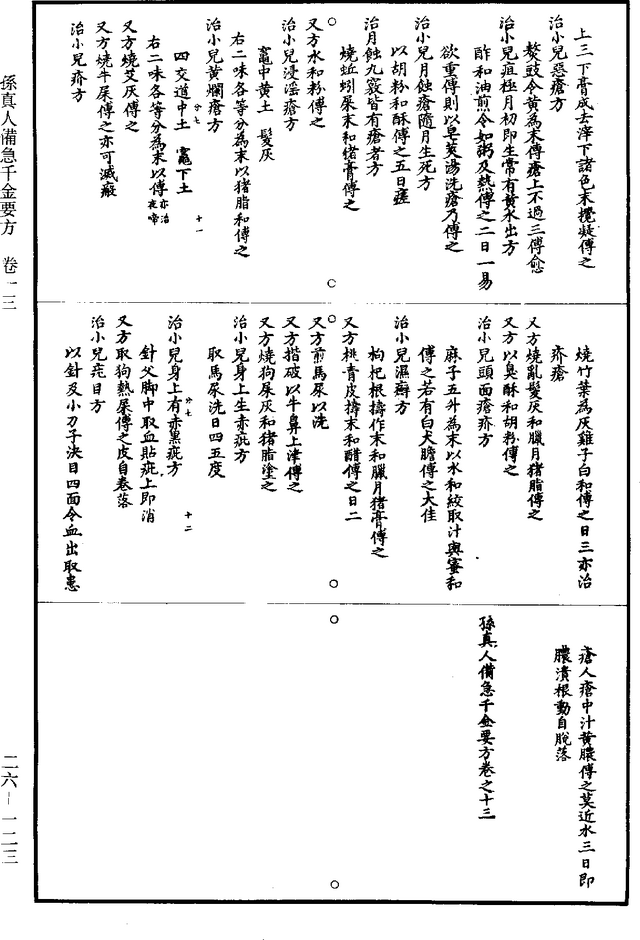 上三下膏成去滓下諸色末攪凝傅之
治小兒惡瘡方
熬豉令黄為末傅瘡上不過三傅愈
治小兒疽極月初即生常有黄水出方
酢和油煎令如粥及熱傅之二日一易
欲重傅則以皂莢湯洗瘡乃傅之
治小兒月蝕瘡隨月生死方
以胡粉和酥傅之五日瘥
治月蝕九竅皆有瘡者方
燒蚯蚓屎末和猪膏傅之
又方水和粉傅之
治小兒浸淫瘡方
竈中黄土　髮灰
右二味各等分為末以猪脂和傅之
治小兒黄爛瘡方
四交道中土　竈下土
右二味各等分為末以傅亦治夜啼
又方燒艾灰傅之
又方燒牛屎傅之亦可滅瘢
治小兒疥方
燒竹葉為灰雞子白和傅之日三亦治
疥瘡
又方燒亂髮灰和臘月猪脂傅之
又方以臭酥和胡粉傅之
治小兒頭面瘡疥方
麻子五升為末以水和絞取汁與蜜和
傅之若有白犬膽傅之大佳
治小兒濕癬方
枸杞根擣作末和臘月猪膏傅之
又方桃青皮擣末和醋傅之日二
又方煎馬尿以洗
又方揩破以牛鼻上津傅之
又方燒狗屎灰和猪脂塗之
治小兒身上生赤疵方
取馬尿洗日四五度
治小兒身上有赤黑疵方
針父脚中取血貼疵上即消
又方取狗熱屎傅之皮自卷落
治小兒疣目方
以針及小刀子决目四面令血出取患
瘡人瘡中汁黄膿傅之莫近水三日即
膿潰根動自脫落
孫真人備急千金要方卷之十三
孫真人備急千金要方　卷十三
二六－一二三